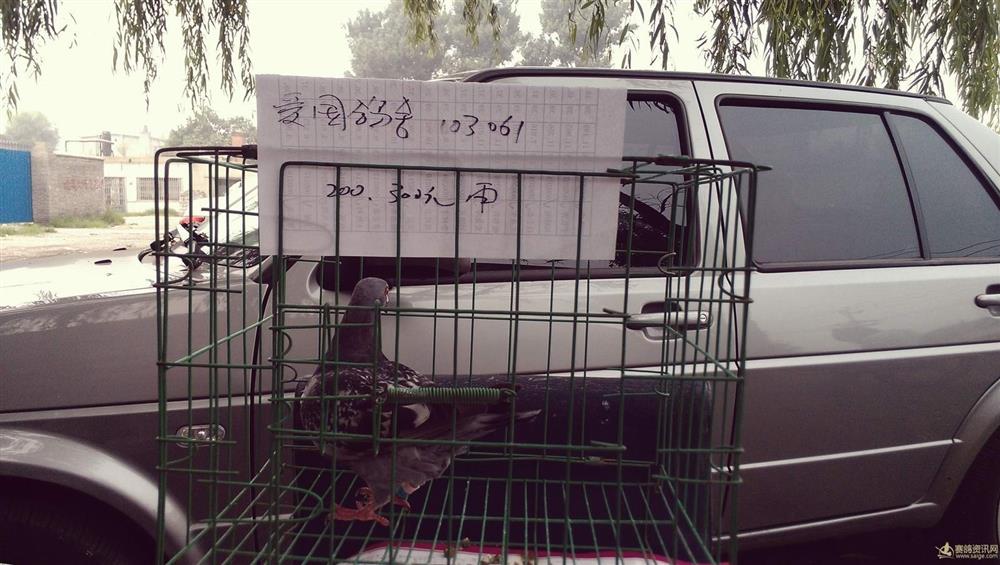 爱国鸽舍 103061
200. 300元 雨
赛鸽资讯网
www.saige.com